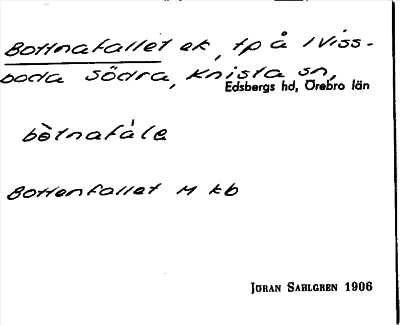 Bottnafallet ek, tp å Viss-
boda Södra, Knista sn,
Edsbergs hd, Örebro län
bòtnafàle
Bottenfallet M kb
JÖRAN SAHLGREN 1906